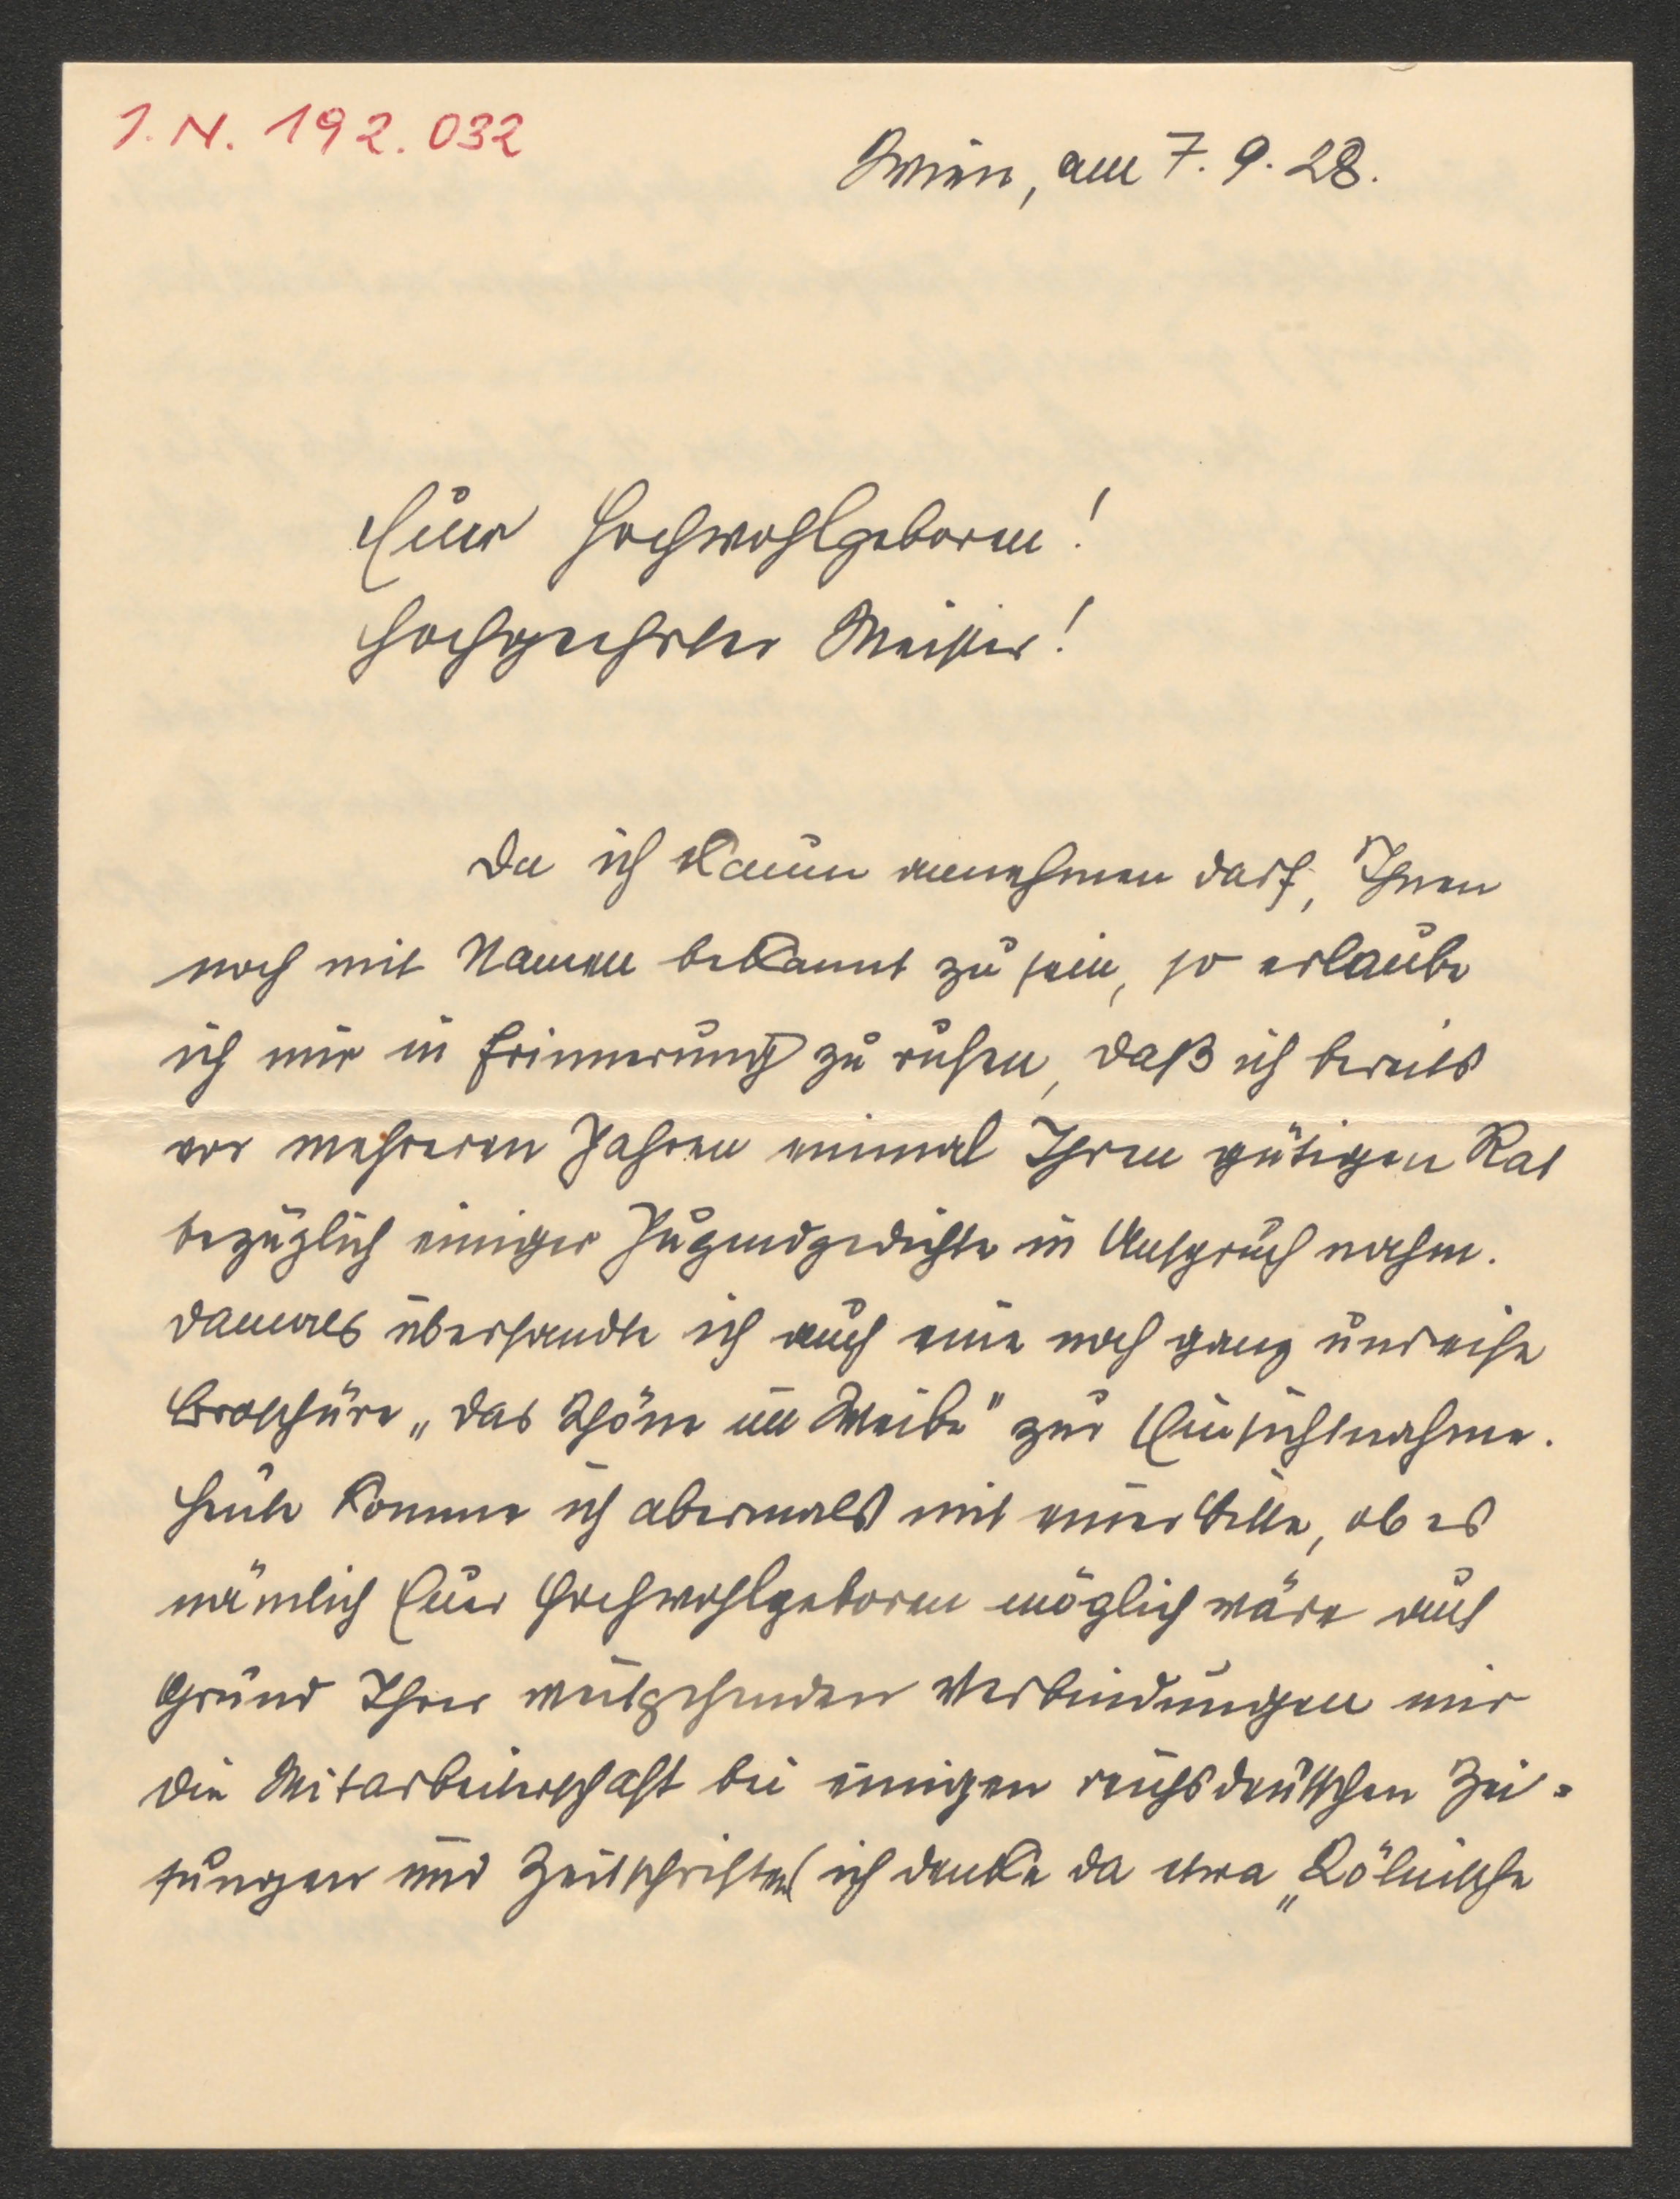 I. N. 192.032
Wien, am 7. 9. 28.
Euer Hochwohlgeboren!
Hochgeehrter Meister!
Da ich kaum annehmen darf, Ihnen
noch mit Namen bekannt zu sein, so erlaube
ich mir in Erinnerung zu rufen, daß ich bereits
vor mehreren Jahren einmal Ihren gütigen Rat
bezüglich einiger Jugendgedichte in Anspruch nahm.
Damals übersandte ich auch eine noch ganz unreife
Broschüre „Das Schöne im Weibe" zur Einsichtnahme.
Heute komme ich abermals mit einer Bitte, ob es
nämlich Euer Hochwohlgeboren möglich wäre auf
Grund Ihrer weitgehenden Verbindungen mir
die Mitarbeiterschaft bei einigen reichsdeutschen Zei=
tungen und Zeitschriften (ich denke da etwa „Kölnische